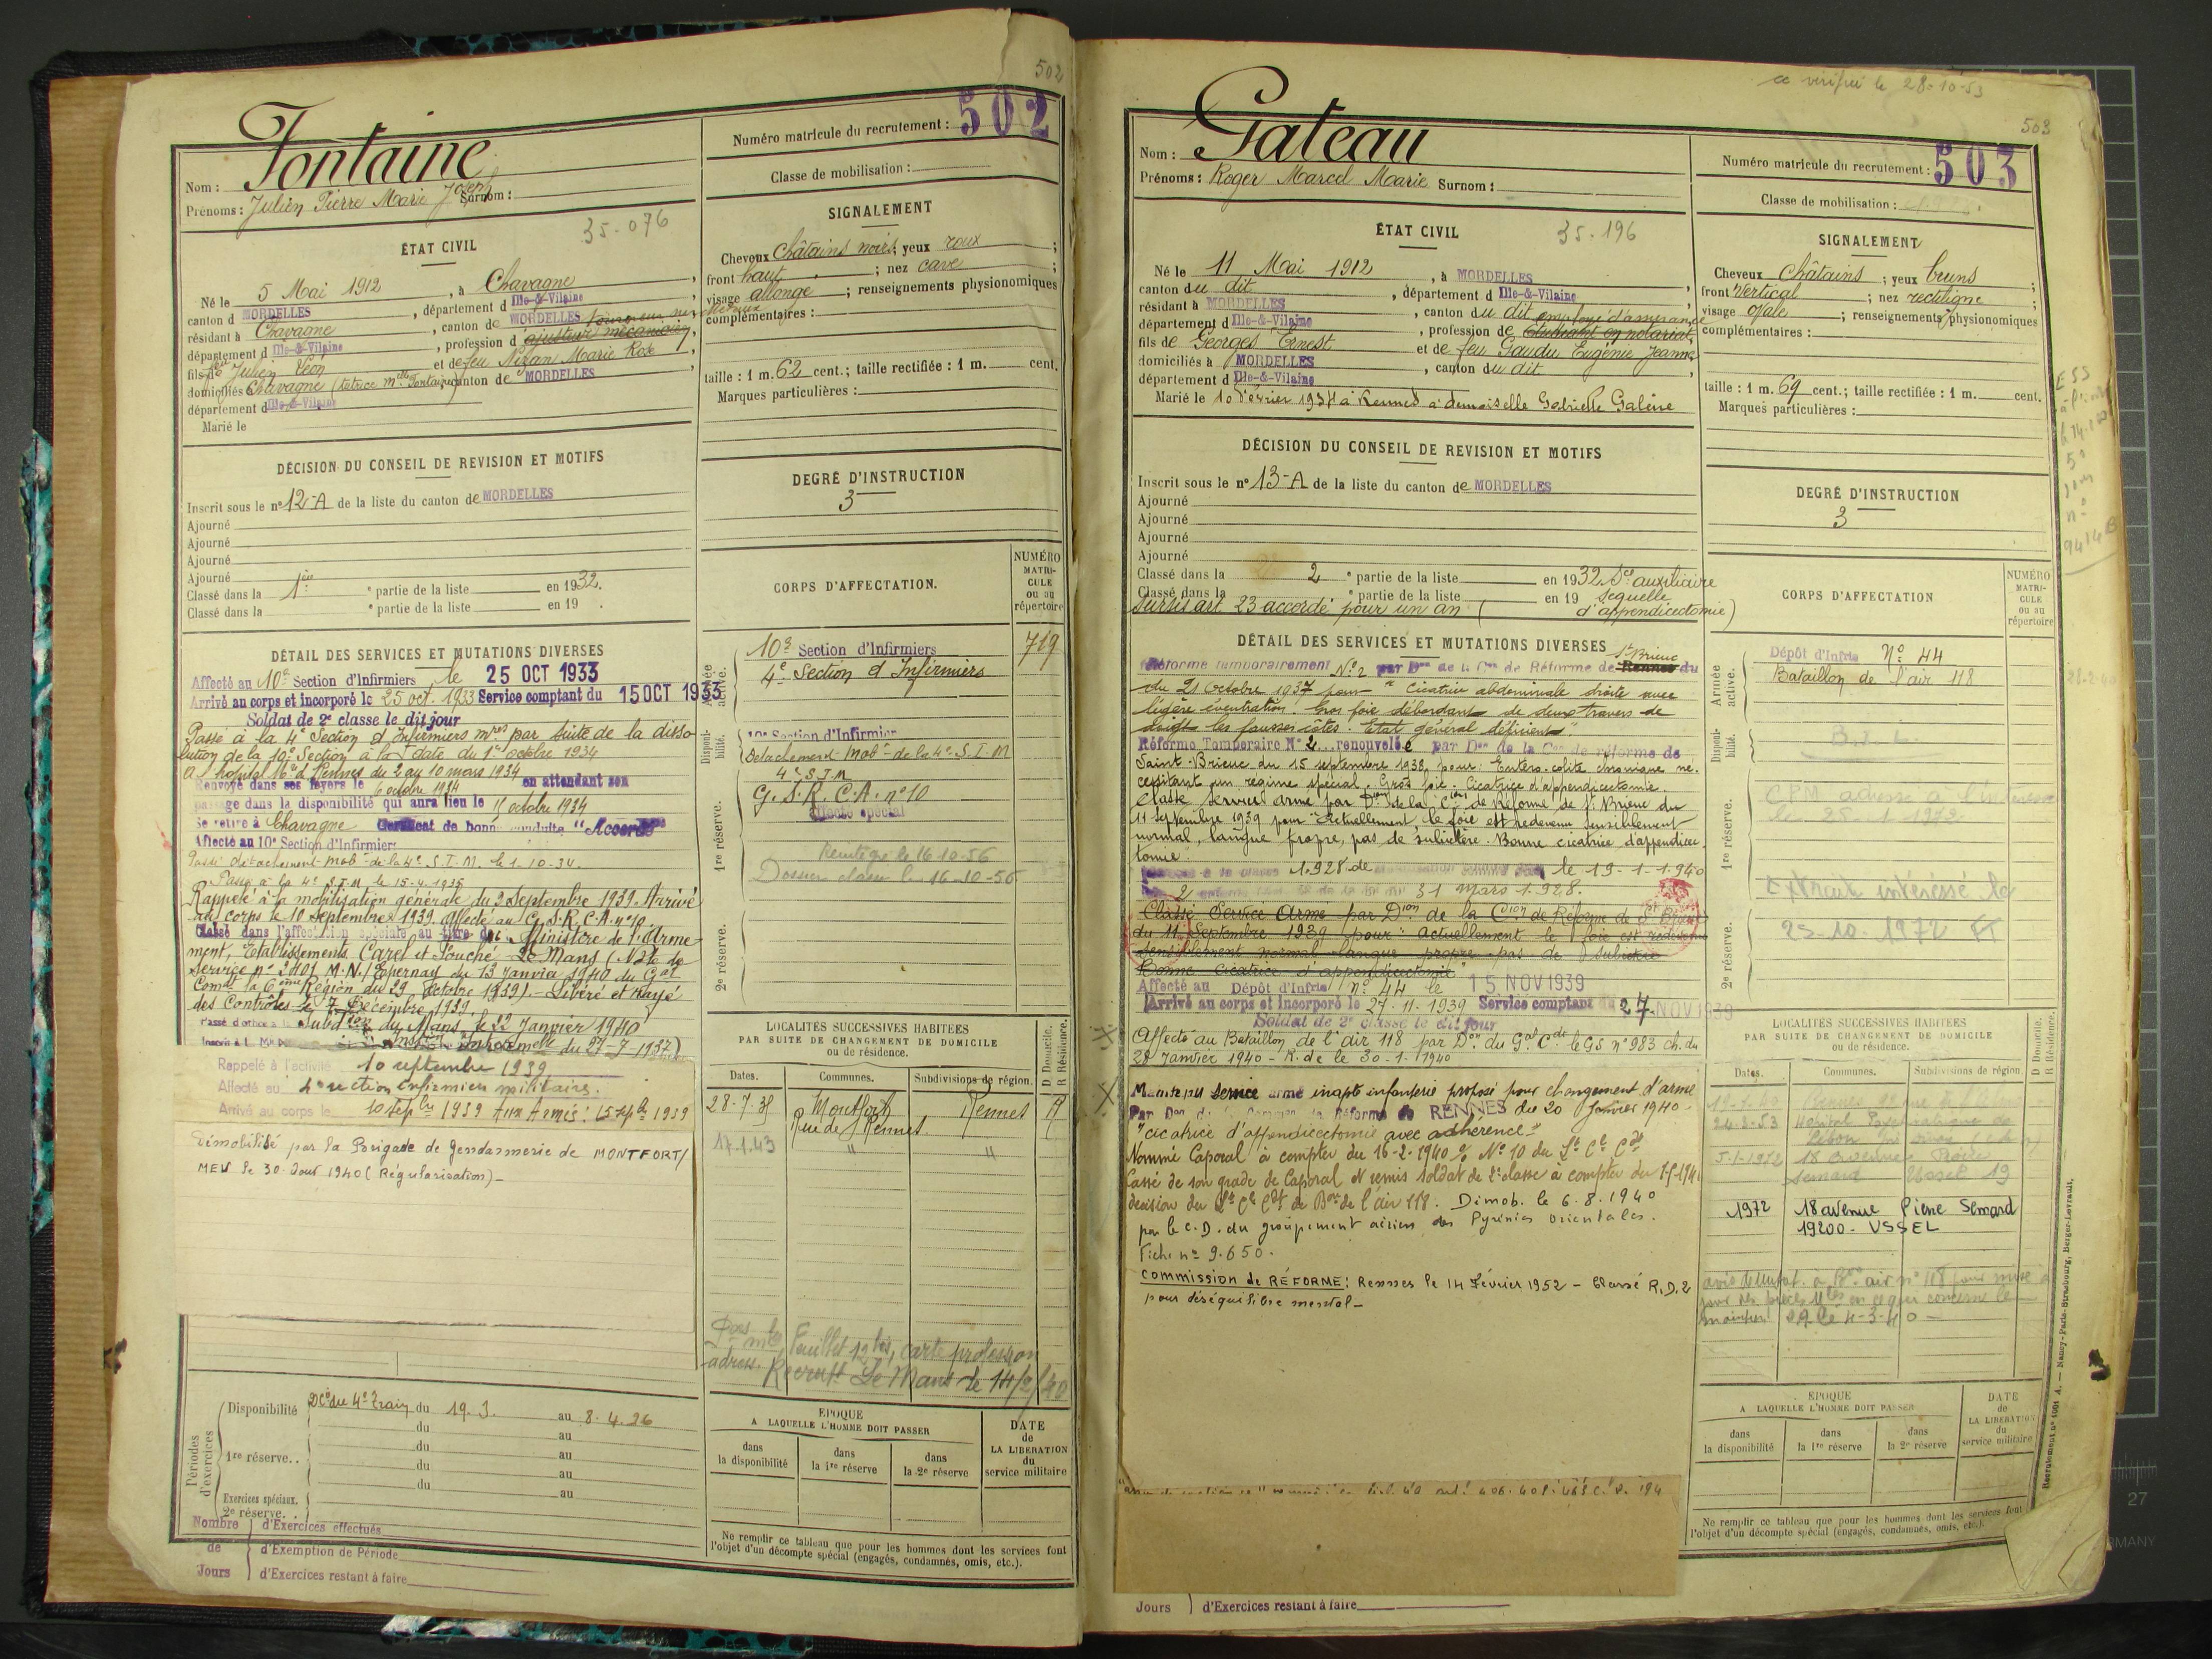 502
Fontaine
Nom :
Prénoms : Julien Pierre Marie Joseph Surnom :
Numéro matricule du recrutement : 502
Classe de mobilisation :
ÉTAT CIVIL
35-076
Né le 5 Mai 1912, à Chavagne,
canton d MORDELLES, département d Ille-&-Vilaine,
résidant à Chavagne, canton de MORDELLES
département d Ille-&-Vilaine, profession d ajusteur mécanicien,
fils de feu Julien Léon et de feu Nizan Marie Rose
domiciliés Chavagne (tutrice Mlle Fontaine) canton de MORDELLES
département d Ille-&-Vilaine
Marié le
SIGNALEMENT
Cheveux châtains noirs; yeux roux;
front haut; nez cave;
visage allongé; renseignements physionomiques
complémentaires :
taille : 1 m. 62 cent.; taille rectifiée : 1 m. cent.
Marques particulières :
DÉCISION DU CONSEIL DE REVISION ET MOTIFS
Inscrit sous le n° 12-A de la liste du canton de MORDELLES
Ajourné
Ajourné
Ajourné
Ajourné
Classé dans la 1ère partie de la liste en 1932.
Classé dans la e partie de la liste en 19 .
DEGRÉ D'INSTRUCTION
3
CORPS D'AFFECTATION.
NUMÉRO MATRI-CULE ou au répertoire
DÉTAIL DES SERVICES ET MUTATIONS DIVERSES
Affecté au 10e Section d'Infirmiers, le 25 OCT 1933
Arrivé au corps et incorporé le 25 oct. 1933 Service comptant du 15 OCT 1933
Soldat de 2e classe le dit jour
Passé à la 4e Section d'Infirmiers mres par suite de la disso-
lution de la 10e Section à la date du 1er octobre 1934
A l'hopital Mre d Rennes du 2 au 10 mars 1934
Renvoyé dans ses foyers le 6 octobre 1934 en attendant son
passage dans la disponibilité qui aura lieu le 15 octobre 1934
Se retire à Chavagne Certificat de bonne conduite "Accordé"
Affecté au 10e Section d'Infirmiers
Passé détachement mobre de la 4e S.I.M. le 1-10-34.
Passé à la 4e S.I.M le 15-4-1935
Rappelé à la mobilisation générale du 2 Septembre 1939. Arrivé
au corps le 10 Septembre 1939. affecté au G.S.R.C.A. n°10.
Classé dans l'affectation spéciale au titre du Ministère de l'Arme-
ment, Etablissements Carel et Fouché Le Mans (Note de
service n° 2401 M.N./Epernay du 13 Janvier 1940 du Gal
Comt la 6ème Région du 29 Octobre 1939). Libéré et rayé
des Contrôles le 7 Décembre 1939.
Passé d'office à la Subdion du Mans, le 22 Janvier 1940
Rappelé à l'activité 10 septembre 1939
Affecté au 4e section infirmiers militaires.
Arrivé au corps le 10 septbre 1939 Aux Armées : 15 septbre 1939
Démobilisé par la Brigade de Gendarmerie de MONTFORT/
MEU le 30 Aout 1940 (Régularisation) -
Armée active.
10e Section d'Infirmiers 719
4e Section d'Infirmiers
Disponi-bilité.
10e Section d'Infirmier
Détachement Mobre de la 4e S.I.M
4e S.I.M
1re réserve.
G.S.R.C.A. n°10
affecté spécial
Réintégré le 16-10-56
Dossier classé le 16-10-56
2e réserve.
LOCALITÉS SUCCESSIVES HABITÉES
PAR SUITE DE CHANGEMENT DE DOMICILE
ou de résidence.
D. Domicile. R Résidence.
Dates. Communes. Subdivisions de région.
28-7-35 Montfort Rennes R
Rue de Rennes
17.1.43 " "
Feuillet 12bis, carte profession
adress. Recrutt Le Mans le 14/2/40
Périodes d'exercices
Disponibilité DCo du 4e Train du 19.3. au 8.4.36
du au
1re réserve.. du au
du au
du au
Exercices spéciaux. au
2e réserve. .
Nombre d'Exercices effectués
de d'Exemption de Période
Jours d'Exercices restant à faire
EPOQUE
A LAQUELLE L'HOMME DOIT PASSER
dans la disponibilité
dans la 1re réserve
dans la 2e réserve
DATE de LA LIBÉRATION du service militaire
Ne remplir ce tableau que pour les hommes dont les services font
l'objet d'un décompte spécial (engagés, condamnés, omis, etc.).
vérifié le 28-10-53
503
Nom : Gateau
Prénoms : Roger Marcel Marie Surnom :
Numéro matricule du recrutement : 503
Classe de mobilisation :
ÉTAT CIVIL
35.196
Né le 11 Mai 1912, à MORDELLES
canton du dit, département d Ille-&-Vilaine,
résidant à MORDELLES, canton du dit employé d'assurance
département d Ille-&-Vilaine, profession de étudiant en notariat,
fils de Georges Ernest et de feu Gaudu Eugénie Jeanne
domiciliés à MORDELLES, canton du dit
département d Ille-&-Vilaine
Marié le 10 Février 1934 à Rennes à demoiselle Gabrielle Galène
SIGNALEMENT
Cheveux châtains; yeux bruns
front Vertical; nez rectiligne;
visage ovale; renseignements physionomiques
complémentaires :
taille : 1 m. 69 cent.; taille rectifiée : 1 m. cent.
Marques particulières :
DÉCISION DU CONSEIL DE REVISION ET MOTIFS
Inscrit sous le n° 13-A de la liste du canton de MORDELLES
Ajourné
Ajourné
Ajourné
Ajourné
Classé dans la 2e partie de la liste en 1932 Sce auxiliaire
Classé dans la e partie de la liste en 19 sequelle
Sursis art 23 accordé pour un an ( d'appendicectomie)
DEGRÉ D'INSTRUCTION
3
CORPS D'AFFECTATION
NUMÉRO MATRI-CULE ou au répertoire
DÉTAIL DES SERVICES ET MUTATIONS DIVERSES
Réforme temporairement N°2 par Don de la Con de Réforme de Rennes St Brieuc du
du 21 Octobre 1937 pour "Cicatrice abdominale droite avec
légère éventration. Gros foie débordant de deux travers de
doigt les fausses côtes. Etat général déficient".
Réforme Temporaire N°2 renouvelée par Don de la Con de réforme de
Saint-Brieuc du 15 septembre 1938, pour : Entéro-colite chronique né-
cessitant un régime spécial. Gros foie. Cicatrice d'appendicectomie.
Classé service armé par Dion de la Cion de Réforme de St Brieuc du
11 septembre 1939 pour "Actuellement le foie est redevenu sensiblement
normal, langue propre, pas de subictère. Bonne cicatrice d'appendicec-
tomie".
1.928 de le 19-1-1.940
31 Mars 1.928.
Classé Service Armé par Dion de la Cion de Réforme de St Brieuc
du 11 Septembre 1939 pour : actuellement le foie est redevenu
sensiblement normal langue propre pas de subictère
Bonne cicatrice d'appendicectomie
Affecté au Dépôt d'Infrie n° 44 le 15 NOV 1939
Arrivé au corps et incorporé le 27-11-1939 Service comptant du 27 NOV 1939
Soldat de 2e classe le dit jour
Affecté au Bataillon de l'air 118 par Don du Gal Cdt le GS n° 983 ch. du
28 Janvier 1940 - R. de le 30-1-1940
Maintenu service armé inapte infanterie proposé pour changement d'arme
Par Don de la Common de Réforme de RENNES du 20 Janvier 1940 -
"cicatrice d'appendicectomie avec adhérence"
Nommé Caporal à compter du 16-2-1940 % N° 10 du Lt Cl Cdt
Cassé de son grade de Caporal et remis soldat de 2e classe à compter du
décision du Lt Cl Cdt de Bon de l'air 118. Dimob. le 6.8.1940
par le C.D. du groupement aérien des Pyrénées Orientales.
Fiche n° 9.650.
Commission de RÉFORME : Rennes le 14 Février 1952 - Classé R.D.2
pour déséquilibre mental -
Jours d'Exercices restant à faire
Armée active.
Dépôt d'Infrie N° 44
Bataillon de l'air 118
Disponi-bilité.
B.I.L.
1re réserve.
CPM adressé à l'
le 25-1-1972
Extrait intéressé le
2e réserve.
25-10-1972
LOCALITÉS SUCCESSIVES HABITÉES
PAR SUITE DE CHANGEMENT DE DOMICILE
ou de résidence.
D. Domicile. R Résidence.
Dates. Communes. Subdivisions de région
24-3-53
5-1-1972 18 avenue Pierre
Semard Ussel 19
1972 18 avenue Pierre Semard
19200 - USSEL
le 4-3-40 -
EPOQUE
A LAQUELLE L'HOMME DOIT PASSER
dans la disponibilité
dans la 1re réserve
dans la 2e réserve
DATE de LA LIBÉRATION du service militaire
Ne remplir ce tableau que pour les hommes dont les services font
l'objet d'un décompte spécial (engagés, condamnés, omis, etc.).
Nancy-Paris-Strasbourg, Berger-Levrault.
27